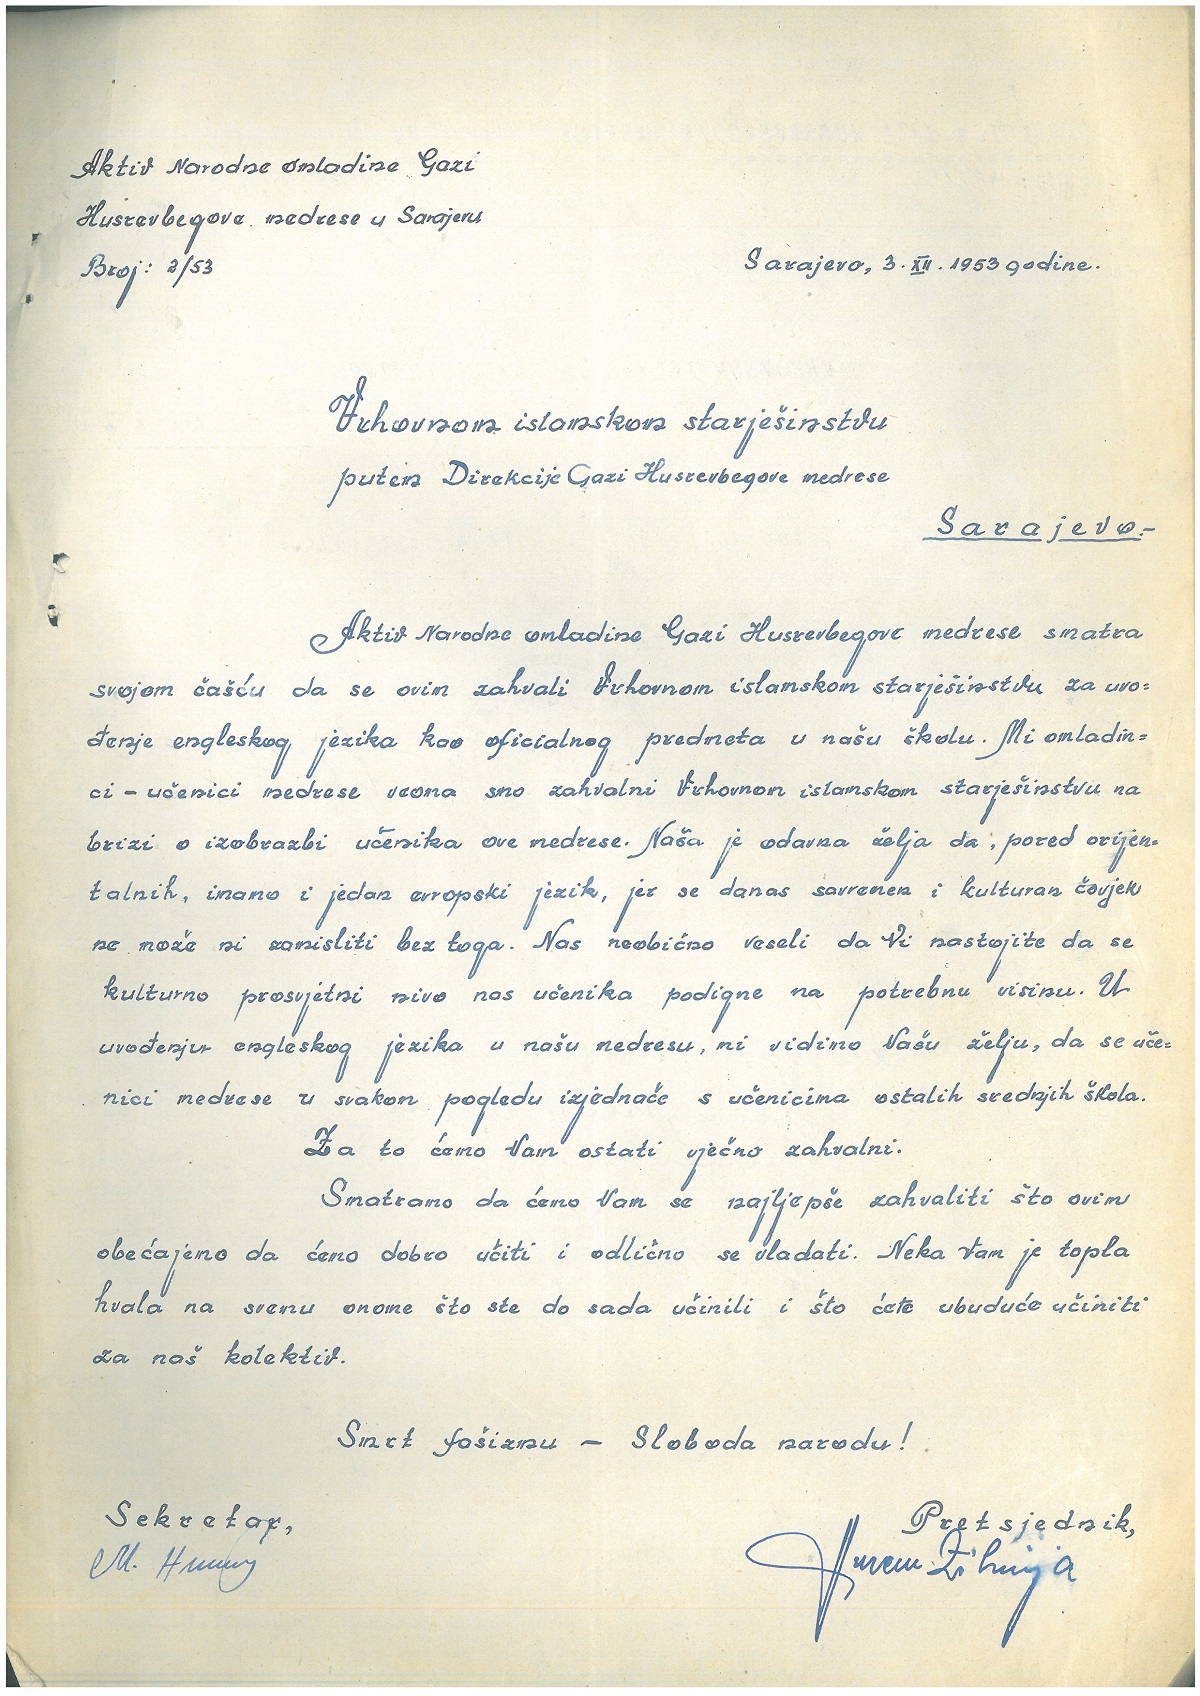 Aktiv Narodne omladine Gazi
Husrevbegove medrese u Sarajevu
Broj: 2/53
Sarajevo, 3. XII. 1953 godine.
Vrhovnom islamskom starješinstvu
putem Direkcije Gazi Husrevbegove medrese
Sarajevo.-
Aktiv Narodne omladine Gazi Husrevbegove medrese smatra
svojom čašću da se ovim zahvali Vrhovnom islamskom starješinstvu za uvo=
đenje engleskog jezika kao oficialnog predmeta u našu školu. Mi omladin=
ci - učenici medrese veoma smo zahvalni Vrhovnom islamskom starješinstvu na
brizi o izobrazbi učenika ove medrese. Naša je odavna želja da, pored orijen=
talnih, imamo i jedan evropski jezik, jer se danas savremen i kulturan čovjek
ne može ni zamisliti bez toga. Nas neobično veseli da Vi nastojite da se
kulturno prosvjetni nivo nas učenika podigne na potrebnu visinu. U
uvođenju engleskog jezika u našu medresu, mi vidimo Vašu želju, da se uče=
nici medrese u svakom pogledu izjednače s učenicima ostalih srednjih škola.
Za to ćemo Vam ostati vječno zahvalni.
Smatramo da ćemo Vam se najljepše zahvaliti što ovim
obećajemo da ćemo dobro učiti i odlično se vladati. Neka Vam je topla
hvala na svemu onome što ste do sada učinili i što ćete ubuduće učiniti
za naš kolektiv.
Smrt fašizmu - Sloboda narodu!
Sekretar,
Pretsjednik,
M.